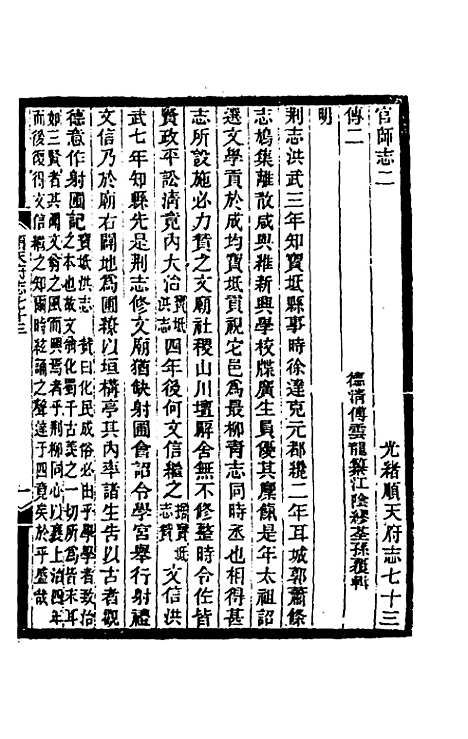 官師志二　光緒順天府志七十三
傳二　德清傅雲龍纂江陰繆荃孫覆輯
明
荆志洪武三年知寶坻縣事時徐達克元都纔二年耳城郭蕭條
志鳩集離散咸與維新興學校牒廣生員優其廩餼是年太祖詔
選文學貢於成均寶坻視它邑爲最柳青志同時丞也相得甚
志所設施必力贊之文廟社稷山川壇廨舍無不修整時令之
賢政平訟清竟內大治寶坻洪志四年後何文信繼之寶坻志贊文信洪
武七年知縣先是荆志修文廟猶缺射圃會詔令學宮舉行射禮
文信乃於廟右闢地爲圃繚以垣構亭其內率諸生告以古者觀
德意作射圃記寶坻洪志贊曰化民成俗必由乎學學者教治
之本也故文翁化蜀千古美之一切所爲皆末耳
如三賢者其聞文翁之風而興焉者乎荆柳同心以襄上治四年
而後復得文信繼之知爾時絃誦之聲達于四竟矣於乎盛哉
順天府志七十三　一